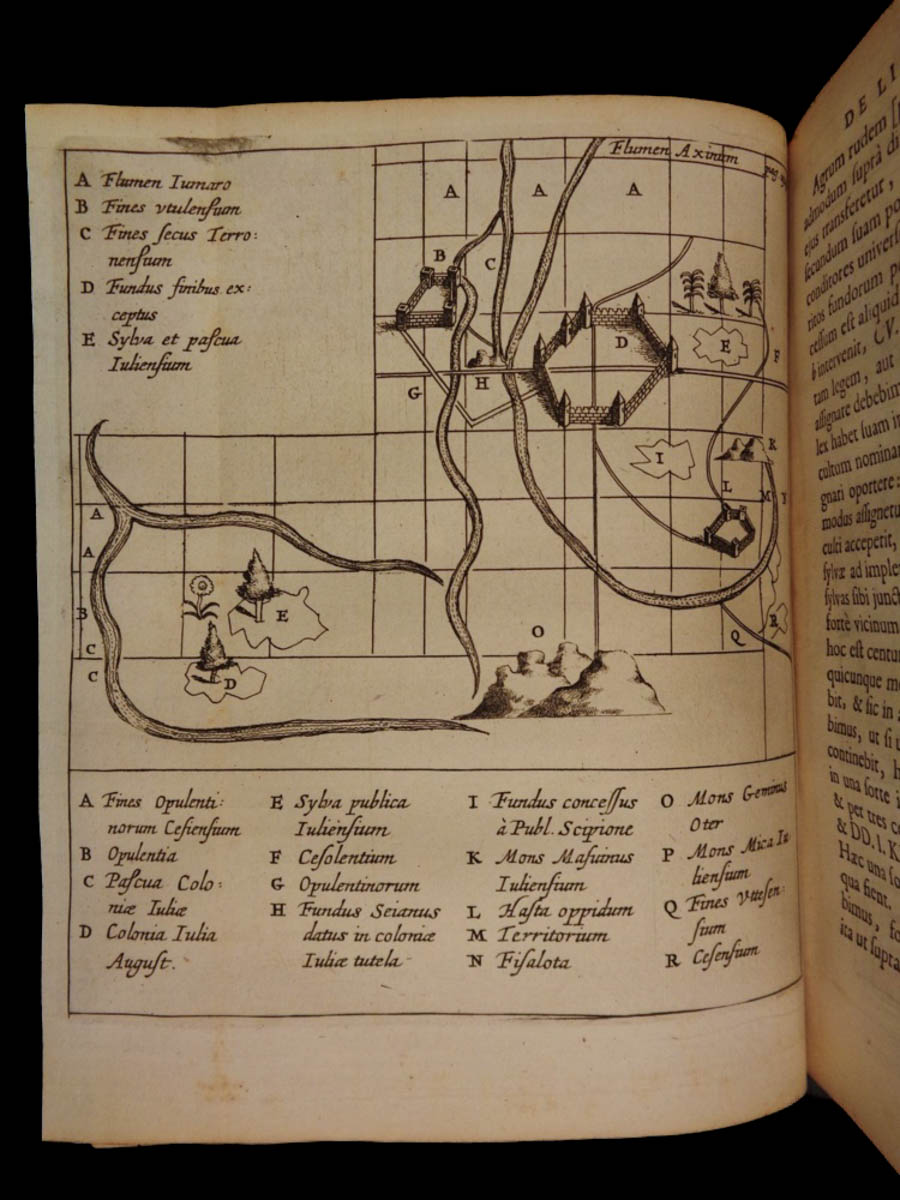 Flumen Axinum
A Flumen Iumaro
B Fines vtulensium
C Fines secus Terro:
nensium
D Fundus finibus ex:
ceptus
E Sylva et pascua
Iuliensium
A
A
A
B
C
D
E
F
G
H
I
R
L
M
A
A
B
C
C
E
D
O
Q
R
A Fines Opulenti:
norum Cesiensium
B Opulentia
C Pascua Colo:
niæ Iuliæ
D Colonia Iulia
August.
E Sylva publica
Iuliensium
F Cesolentium
G Opulentinorum
H Fundus Seianus
datus in coloniæ
Iuliæ tutela
I Fundus concessus
à Publ. Scipione
K Mons Masuinus
Iuliensium
L Hasta oppidum
M Territorium
N Fisalota
O Mons Geminus
Oter
P Mons Mica Iu
liensium
Q Fines Vttesen:
sium
R Cesensium
DE LI
Agrum rudem
admodum suprà di
ejus transferetur,
secundum suam po
conditores universi
titos fundorum
cessum est aliquid
intervenit,
tam legem, aut
assignare debebim
lex habet suam in
cultum nominar
gnari oportere:
modus assignetu
culti acceperit,
sylvæ ad imple
sylvas sibi junct
fortè vicinum
hoc est centu
quicunque mo
bit, & sic in
bimus, ut si u
continebit, h
in una sorte
& per tres ce
& DD. I. K
Hæc una so
qua fient.
bimus, fo
ita ut supra